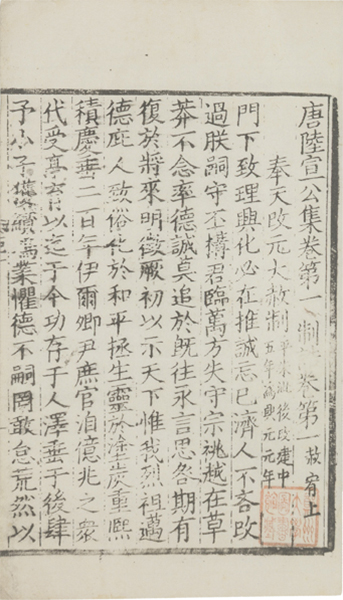 唐陸宣公集卷第一 制 卷第一 赦宥上
奉天改元大赦制 平朱泚後改建中五年為興元元年
門下致理興化必在推誠忘已濟人不吝改
過朕嗣守丕構君臨萬方失守宗祧越在草
莽不念率德誠莫追於既往永言思咎期有
復於將來明徵厥初以示天下惟我烈祖邁
德庇人致俗化於和平拯生靈於塗炭重熙
積慶垂二百年伊爾卿尹庶官洎億兆之衆
代受亭育以迄于今功存于人澤垂于後肆
予小子獲纘鴻業懼德不嗣罔敢怠荒然以